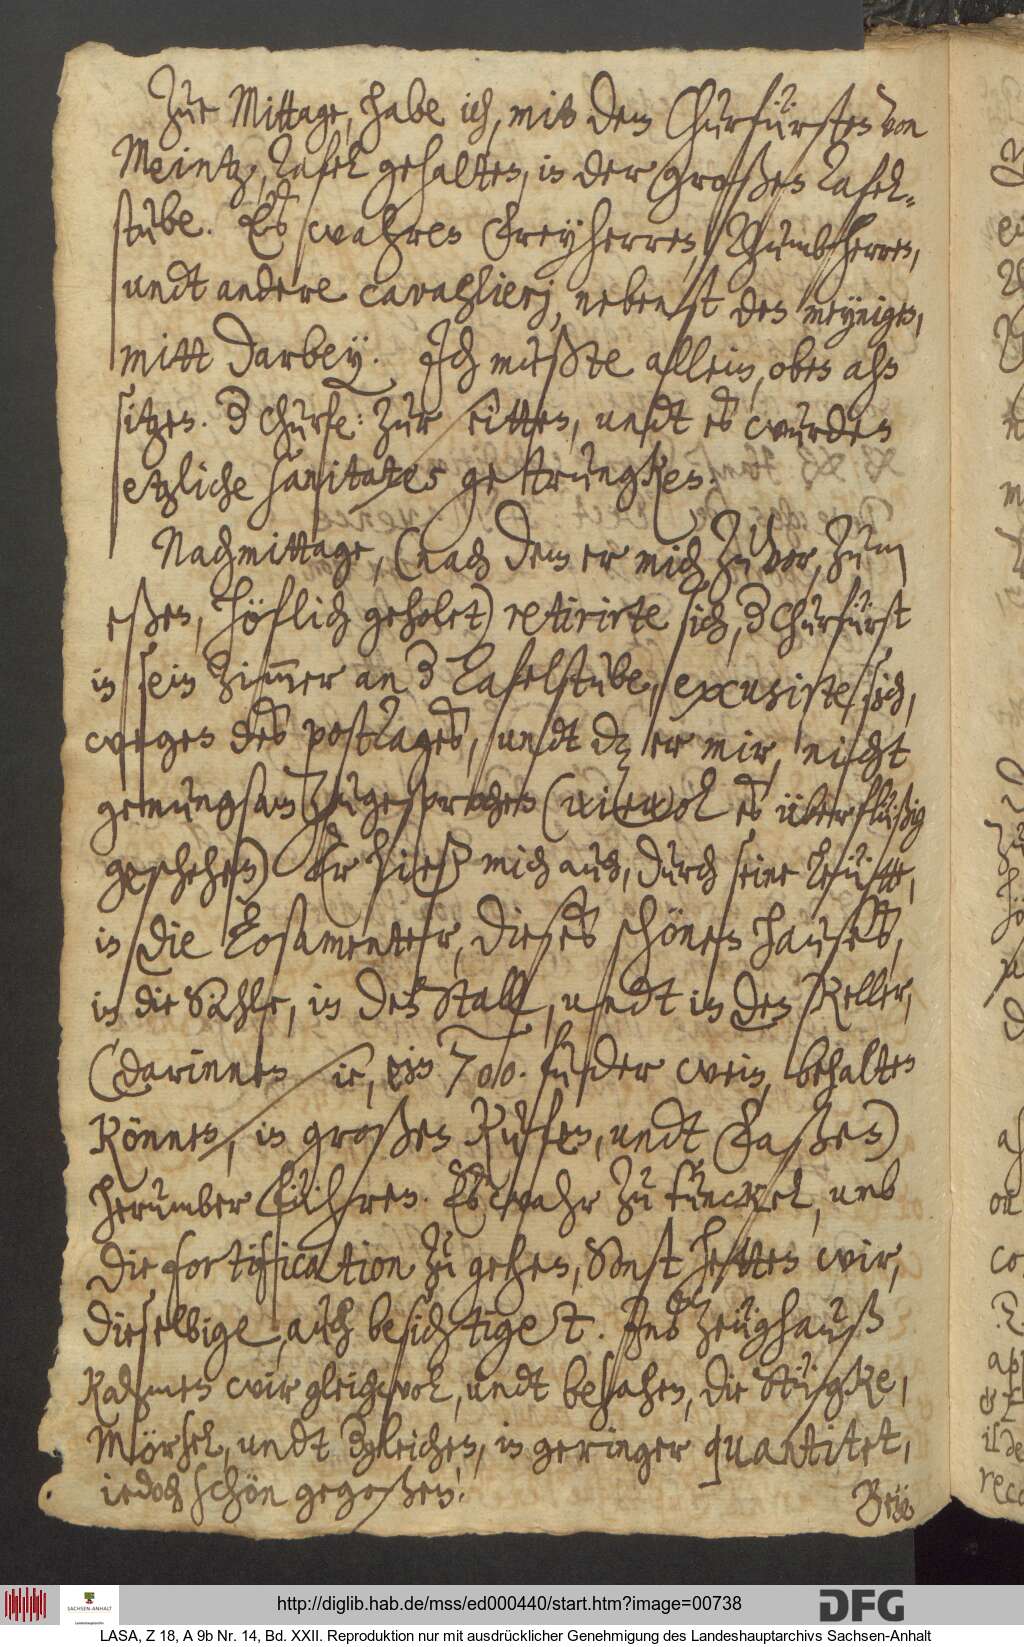 Zue Mittage, habe ich, mit dem Churfürsten von
Meintz, Tafel gehalten, in der großen Tafel-
stube. Es wahren Freyherren, Thumbherren,
undt andere cavaglierj, nebenst den meynigen,
mitt darbey. Ich mußte allein, oben ahn
sitzen. d Churf: zur seitten, undt es wurden
etzliche sanitates getrungken.
Nachmittage, (nach dem er mich zuvor, zum
eßen, höflich geholet) retirirte sich, d Churfürst
in sein Zimmer an d Tafelstube, excusirte sich,
wegen des postTages, undt dz er mir, nicht
genungsam zugesprochen (wiewol es überflüßig
geschehen) Er ließ mich auch, durch seine
in die Losamenter, dieses schönen hauses,
in die Sähle, in den Stall, undt in den Keller,
(darinnen sie, ein 700. fuder wein, behalten
können, in großen Kuffen, undt Faßen)
herumber führen. Es wahr zu tunckel, umb
die fortification zu gehen, Sonst hetten wir,
dieselbige, auch besichtiget. Ins Zeughauß
kahmen wir gleichwol, undt besahen, die Stügke,
Mörsel, undt dgleichen, in geringer quantitet,
iedoch schön gegoßen.
Bey
http://diglib.hab.de/mss/ed000440/start.htm?image=00738
DFG
SACHSEN-ANHALT
Landeshauptarchiv
LASA, Z 18, A 9b Nr. 14, Bd. XXII. Reproduktion nur mit ausdrücklicher Genehmigung des Landeshauptarchivs Sachsen-Anhalt